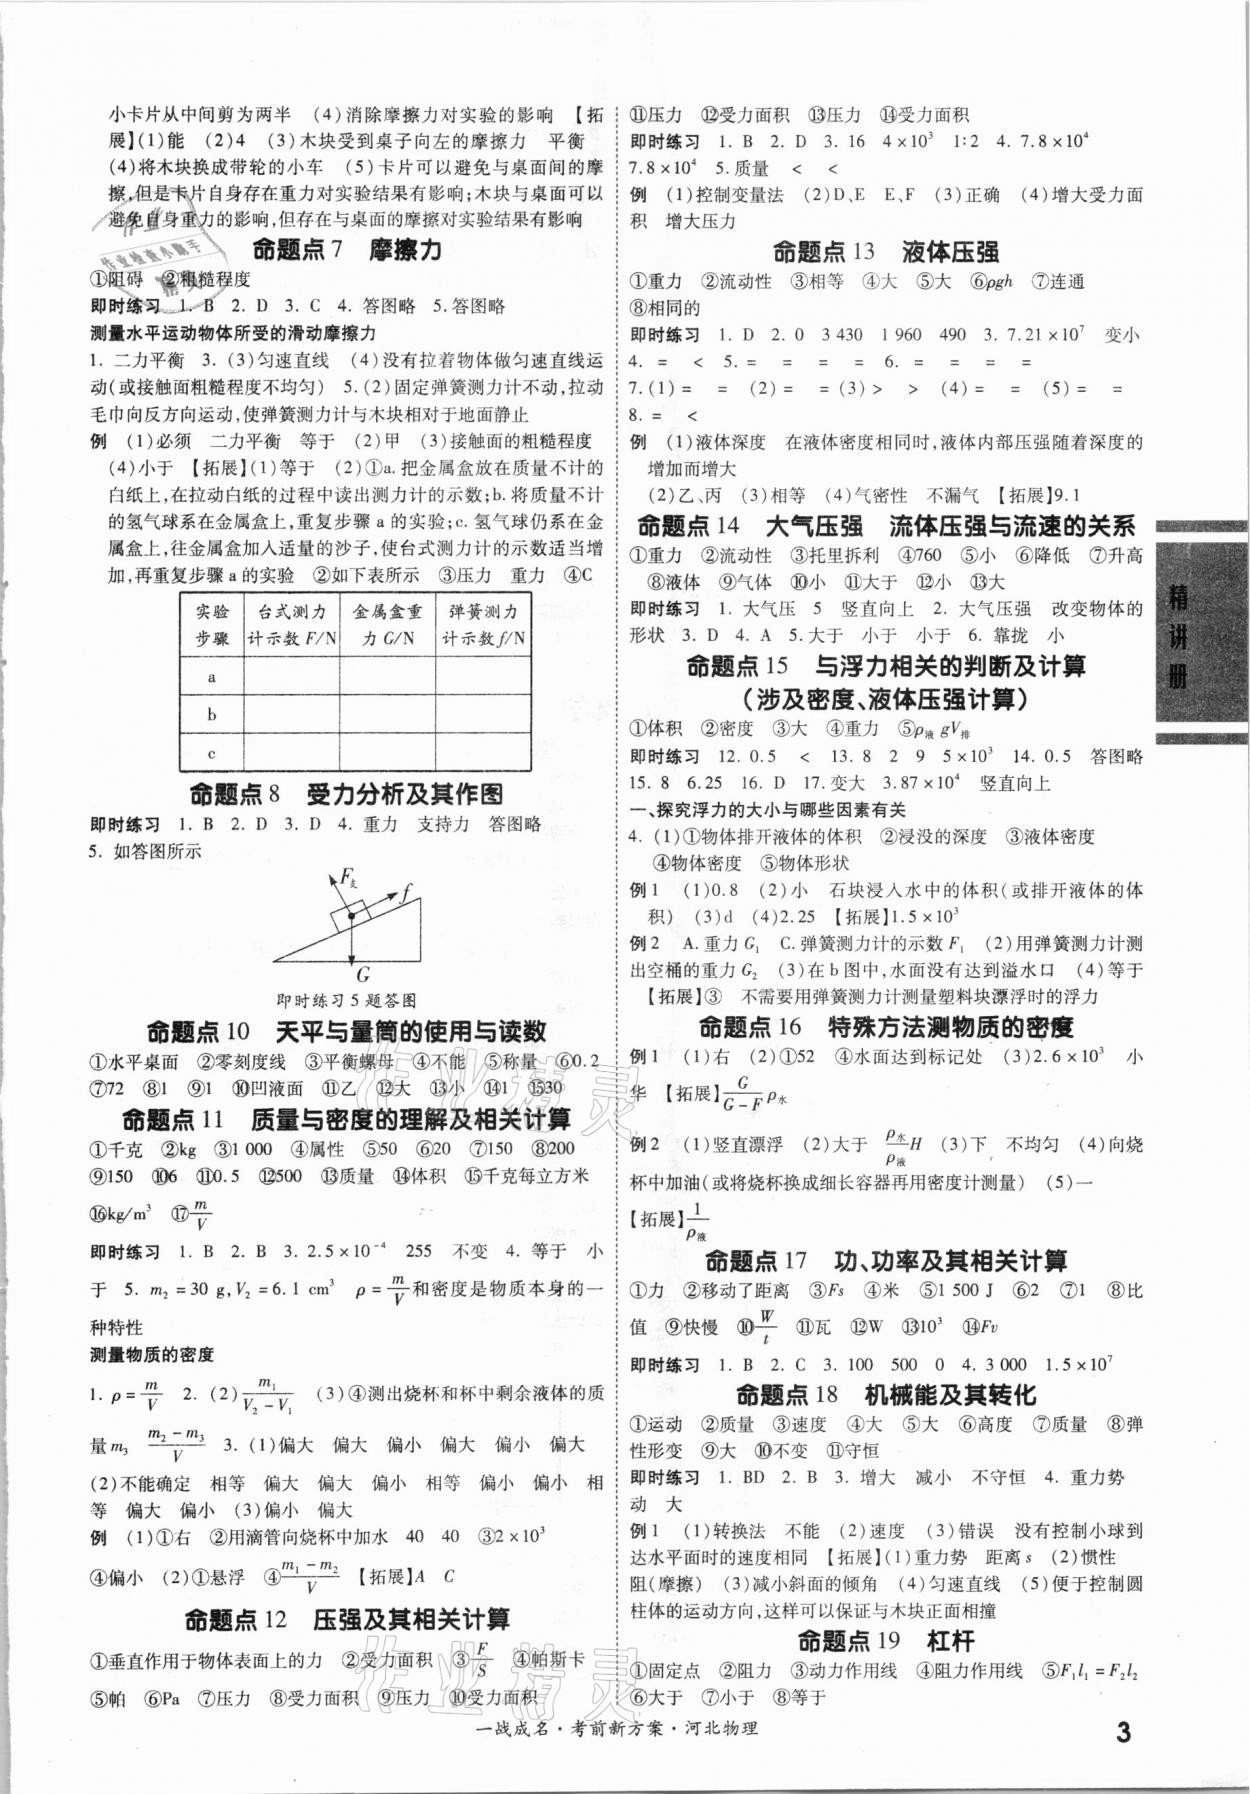 小卡片从中间剪为两半　(4)消除摩擦力对实验的影响　【拓
展】(1)能　(2)4　(3)木块受到桌子向左的摩擦力　平衡
(4)将木块换成带轮的小车　(5)卡片可以避免与桌面间的摩
擦,但是卡片自身存在重力对实验结果有影响;木块与桌面可以
避免自身重力的影响,但存在与桌面的摩擦对实验结果有影响
命题点 7　摩擦力
①阻碍　②粗糙程度
即时练习　1. B　2. D　3. C　4. 答图略　5. 答图略
测量水平运动物体所受的滑动摩擦力
1. 二力平衡　3. (3)匀速直线　(4)没有拉着物体做匀速直线运
动(或接触面粗糙程度不均匀)　5. (2)固定弹簧测力计不动,拉动
毛巾向反方向运动,使弹簧测力计与木块相对于地面静止
例　(1)必须　二力平衡　等于　(2)甲　(3)接触面的粗糙程度
(4)小于　【拓展】(1)等于　(2)①a. 把金属盒放在质量不计的
白纸上,在拉动白纸的过程中读出测力计的示数;b. 将质量不计
的氢气球系在金属盒上,重复步骤 a 的实验;c. 氢气球仍系在金
属盒上,往金属盒加入适量的沙子,使台式测力计的示数适当增
加,再重复步骤 a 的实验　②如下表所示　③压力　重力　④C
实验步骤　台式测力计示数 F/N　金属盒重力 G/N　弹簧测力计示数 f/N
a
b
c
命题点 8　受力分析及其作图
即时练习　1. B　2. D　3. D　4. 重力　支持力　答图略
5. 如答图所示
F支　f
G
即时练习 5 题答图
命题点 10　天平与量筒的使用与读数
①水平桌面　②零刻度线　③平衡螺母　④不能　⑤称量　⑥0.2
⑦72　⑧1　⑨1　⑩凹液面　⑪乙　⑫大　⑬小　⑭1　⑮30
命题点 11　质量与密度的理解及相关计算
①千克　②kg　③1 000　④属性　⑤50　⑥20　⑦150　⑧200
⑨150　⑩6　⑪0.5　⑫500　⑬质量　⑭体积　⑮千克每立方米
⑯kg/m³　⑰m/V
即时练习　1. B　2. B　3. 2.5×10⁻⁴　255　不变　4. 等于　小
于　5. m₂=30 g,V₂=6.1 cm³　ρ=m/V和密度是物质本身的一
种特性
测量物质的密度
1. ρ=m/V　2. (2)m₁/(V₂-V₁)　(3)④测出烧杯和杯中剩余液体的质
量m₃　(m₂-m₃)/V　3. (1)偏大　偏大　偏小　偏大　偏小　偏大
(2)不能确定　相等　偏大　偏大　偏小　相等　偏小　偏小　相
等　偏大　偏小　(3)偏小　偏大
例　(1)①右　②用滴管向烧杯中加水　40　40　③2×10³
④偏小　(2)①悬浮　④(m₁-m₂)/V　【拓展】A　C
命题点 12　压强及其相关计算
①垂直作用于物体表面上的力　②受力面积　③F/S　④帕斯卡
⑤帕　⑥Pa　⑦压力　⑧受力面积　⑨压力　⑩受力面积
⑪压力　⑫受力面积　⑬压力　⑭受力面积
即时练习　1. B　2. D　3. 16　4×10³　1∶2　4. 7.8×10⁴
7.8×10⁴　5. 质量　<　<
例　(1)控制变量法　(2)D、E　E、F　(3)正确　(4)增大受力面
积　增大压力
命题点 13　液体压强
①重力　②流动性　③相等　④大　⑤大　⑥ρgh　⑦连通
⑧相同的
即时练习　1. D　2. 0　3 430　1 960　490　3. 7.21×10⁷　变小
4. =　<　5. =　=　=　=　6. =　=　=　=
7. (1)=　=　=　(2)=　=　(3)>　>　(4)=　=　(5)=　=
8. =　<
例　(1)液体深度　在液体密度相同时,液体内部压强随着深度的
增加而增大
(2)乙、丙　(3)相等　(4)气密性　不漏气　【拓展】9.1
命题点 14　大气压强　流体压强与流速的关系
①重力　②流动性　③托里拆利　④760　⑤小　⑥降低　⑦升高
⑧液体　⑨气体　⑩小　⑪大于　⑫小　⑬大
即时练习　1. 大气压　5　竖直向上　2. 大气压强　改变物体的
形状　3. D　4. A　5. 大于　小于　小于　6. 靠拢　小
命题点 15　与浮力相关的判断及计算
(涉及密度、液体压强计算)
①体积　②密度　③大　④重力　⑤ρ液 gV排
即时练习　12. 0.5　<　13. 8　2　9　5×10³　14. 0.5　答图略
15. 8　6.25　16. D　17. 变大　3.87×10⁴　竖直向上
一、探究浮力的大小与哪些因素有关
4. (1)①物体排开液体的体积　②浸没的深度　③液体密度
④物体密度　⑤物体形状
例 1　(1)0.8　(2)小　石块浸入水中的体积(或排开液体的体
积)　(3)d　(4)2.25　【拓展】1.5×10³
例 2　A. 重力 G₁　C. 弹簧测力计的示数 F₁　(2)用弹簧测力计测
出空桶的重力 G₂　(3)在 b 图中,水面没有达到溢水口　(4)等于
【拓展】③　不需要用弹簧测力计测量塑料块漂浮时的浮力
命题点 16　特殊方法测物质的密度
例 1　(1)右　(2)①52　④水面达到标记处　(3)2.6×10³　小
华　【拓展】G/(G-F)ρ水
例 2　(1)竖直漂浮　(2)大于　ρ水/ρ液H　(3)下　不均匀　(4)向烧
杯中加油(或将烧杯换成细长容器再用密度计测量)　(5)一
【拓展】1/ρ液
命题点 17　功、功率及其相关计算
①力　②移动了距离　③Fs　④米　⑤1 500 J　⑥2　⑦1　⑧比
值　⑨快慢　⑩W/t　⑪瓦　⑫W　⑬10³　⑭Fv
即时练习　1. B　2. C　3. 100　500　0　4. 3 000　1.5×10⁷
命题点 18　机械能及其转化
①运动　②质量　③速度　④大　⑤大　⑥高度　⑦质量　⑧弹
性形变　⑨大　⑩不变　⑪守恒
即时练习　1. BD　2. B　3. 增大　减小　不守恒　4. 重力势
动　大
例 1　(1)转换法　不能　(2)速度　(3)错误　没有控制小球到
达水平面时的速度相同　【拓展】(1)重力势　距离 s　(2)惯性
阻(摩擦)　(3)减小斜面的倾角　(4)匀速直线　(5)便于控制圆
柱体的运动方向,这样可以保证与木块正面相撞
命题点 19　杠杆
①固定点　②阻力　③动力作用线　④阻力作用线　⑤F₁l₁=F₂l₂
⑥大于　⑦小于　⑧等于
精讲册
一战成名·考前新方案·河北物理
3
作业精灵
作业精灵
作业
作业检查小助手
精灵